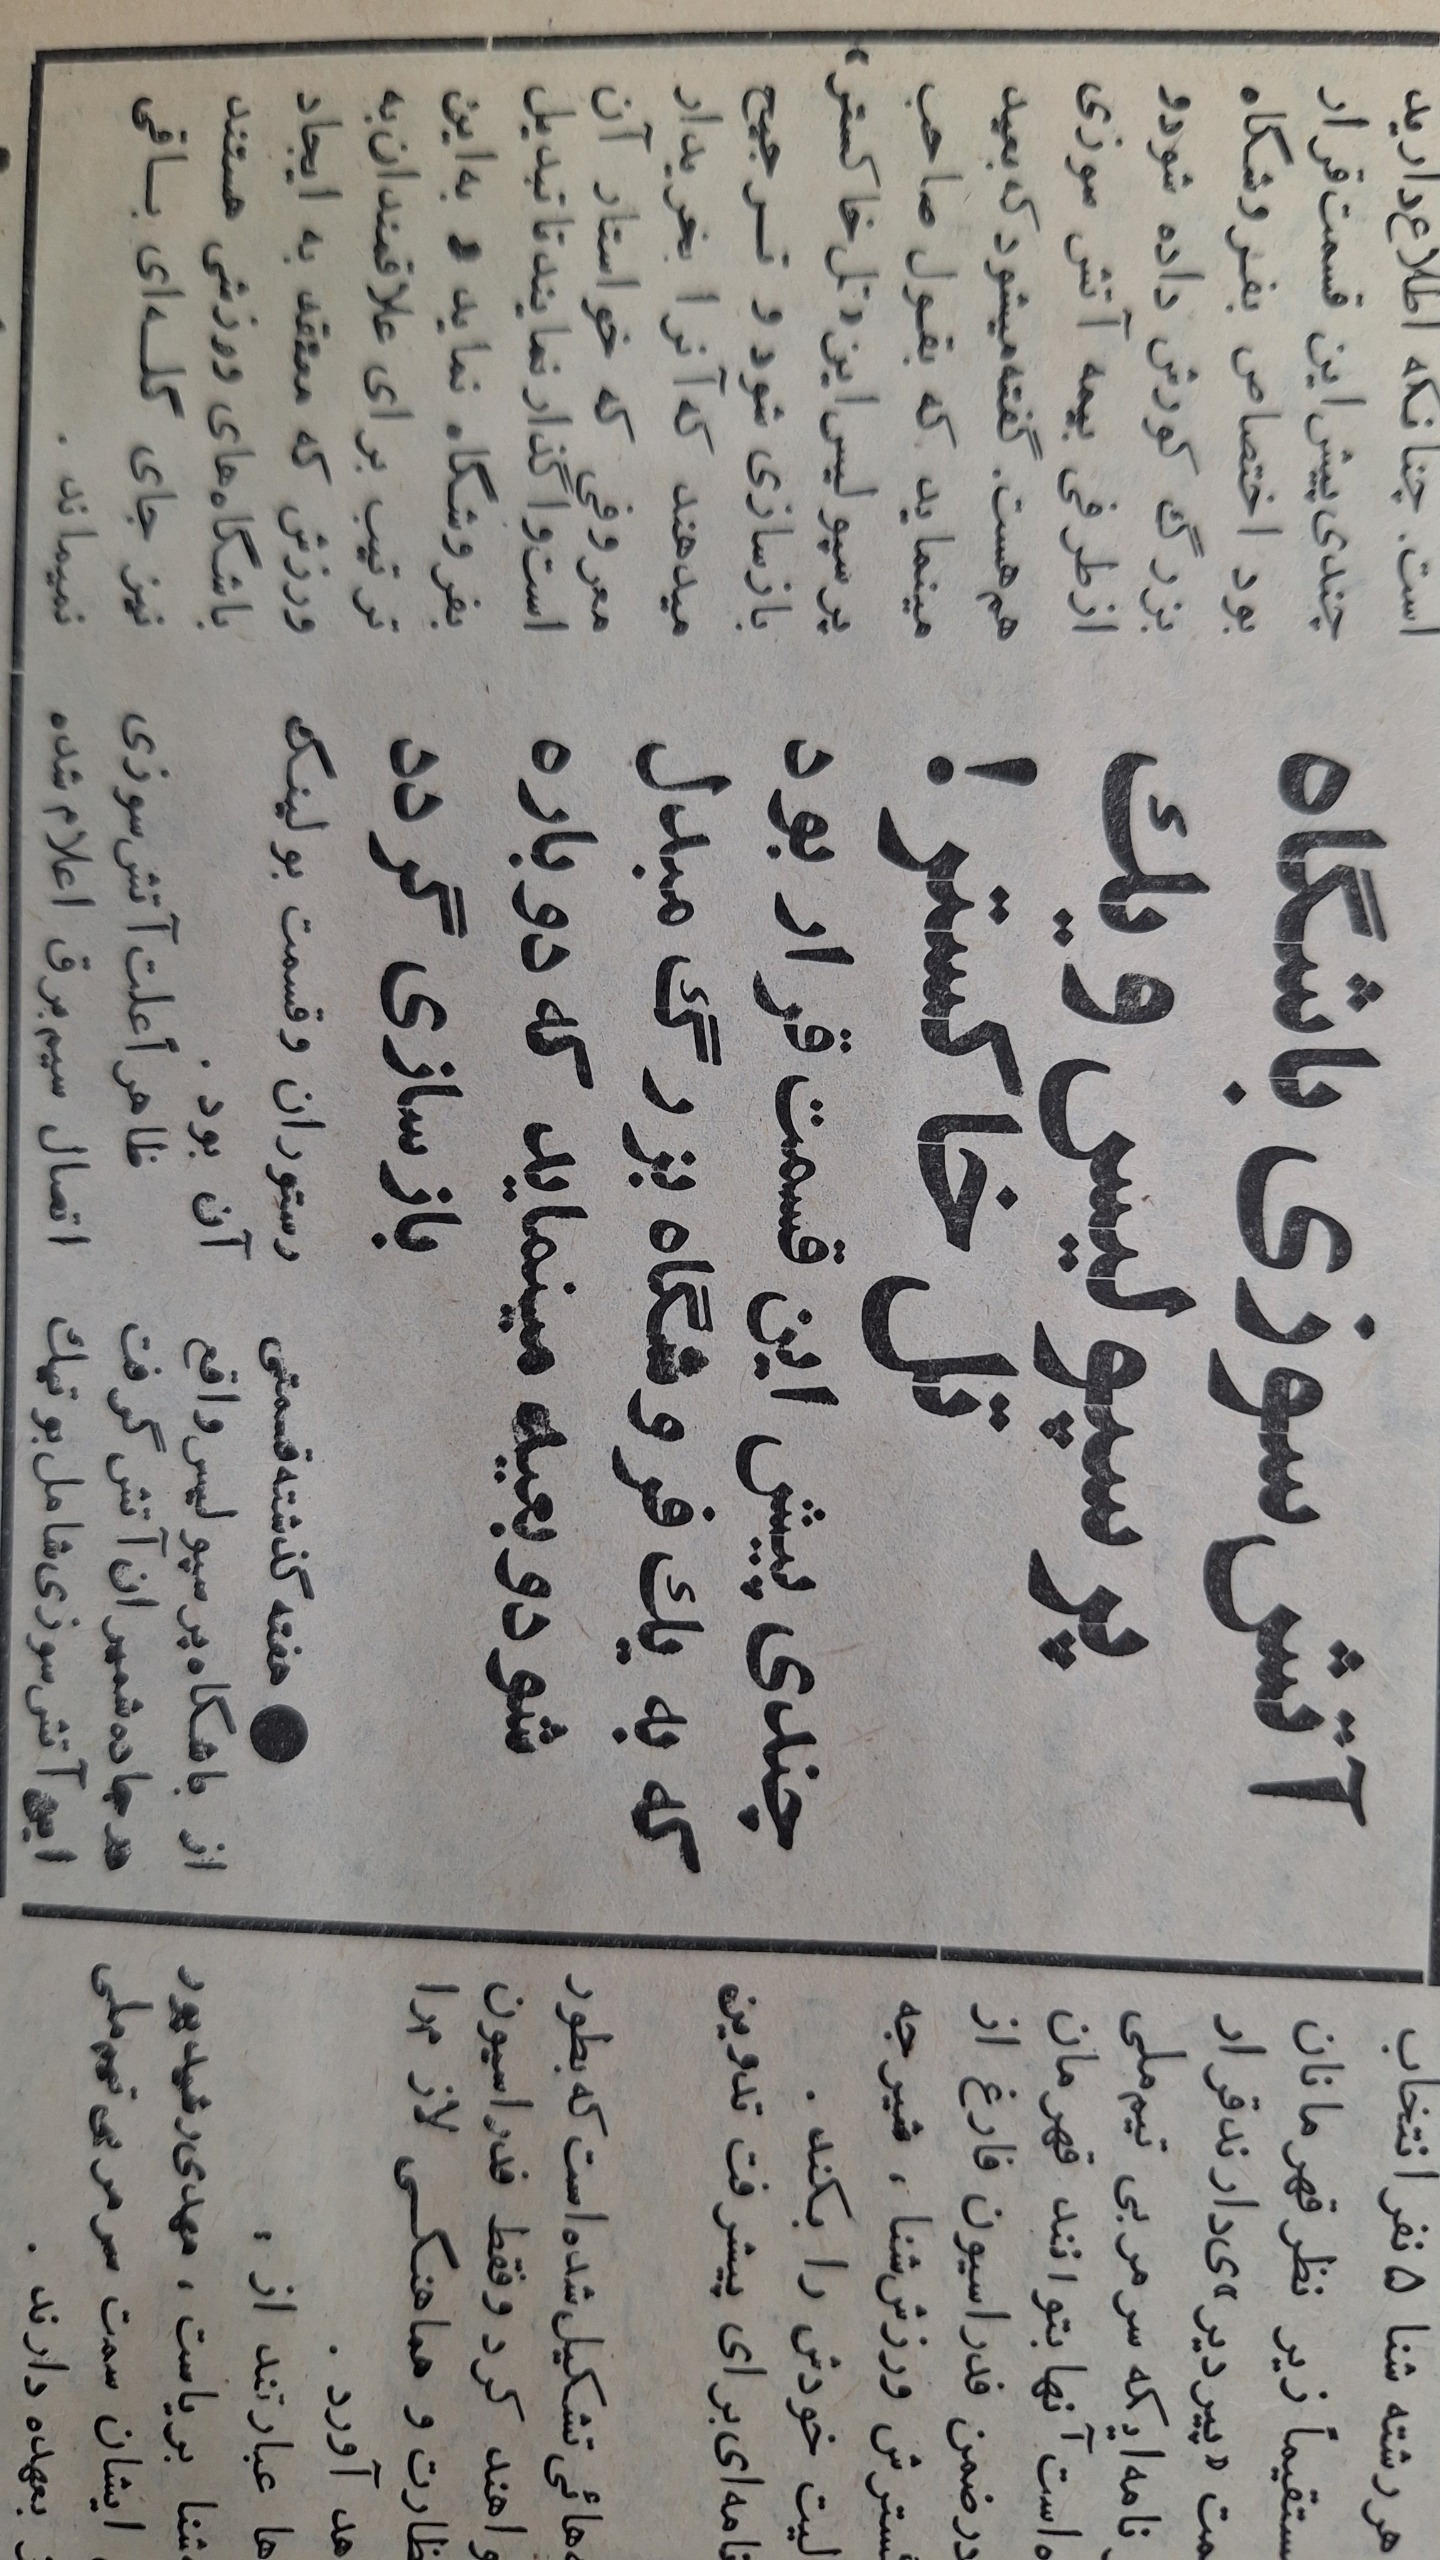 آتش سوزی باشگاه
پرسپولیس و یك
تل خاکستر !
چندی پیش این قسمت قرار بود
که به یك فروشگاه بزرگ مبدل
شود و بعید مینماید که دوباره
بازسازی گردد
● هفته گذشته قسمتی
از باشگاه پرسپولیس واقع
در جاده شمیران آتش گرفت
این آتش سوزی شامل بوتیك
رستوران و قسمت بولینگ
آن بود .
ظاهراً علت آتش سوزی
اتصال سیم برق اعلام شده
است. چنانکه اطلاع دارید
چندی پیش این قسمت قرار
بود اختصاص بفروشگاه
بزرگ کورش داده شود و
از طرفی بیمه آتش سوزی
هم هست. گفته میشود که بعید
مینماید که بقول صاحب
پرسپولیس این «تل خاکستر»
بازسازی شود و ترجیح
میدهند که آنرا بخریدار
معروفی که خواستار آن
است واگذار نمایند تا تبدیل
بفروشگاه نماید و به این
ترتیب برای علاقمندان به
ورزش که معتقد به ایجاد
باشگاه‌های ورزشی هستند
نیز جای گله‌ای باقی
نمیماند .
هر رشته شنا ۵ نفر انتخاب
ستقیماً زیر نظر قهرمانان
مت «پیردیر»ی دارند قرار
نامه ایکه سرمربی تیم ملی
ه است آنها بتوانند قهرمان
درضمن فدراسیون فارغ از
سترش ورزش شنا ، شیرجه
لیت خودش را بکند .
نامه‌ای برای پیشرفت تدوین
ه‌هائی تشکیل شده است که بطور
واهند کرد و فقط فدراسیون
ظارت و هماهنگی لازم را
هد آورد .
ها عبارتند از :
شنا بریاست ، مهدی رشیدپور
ایشان سمت سرمربی تیم ملی
بعهده دارند .